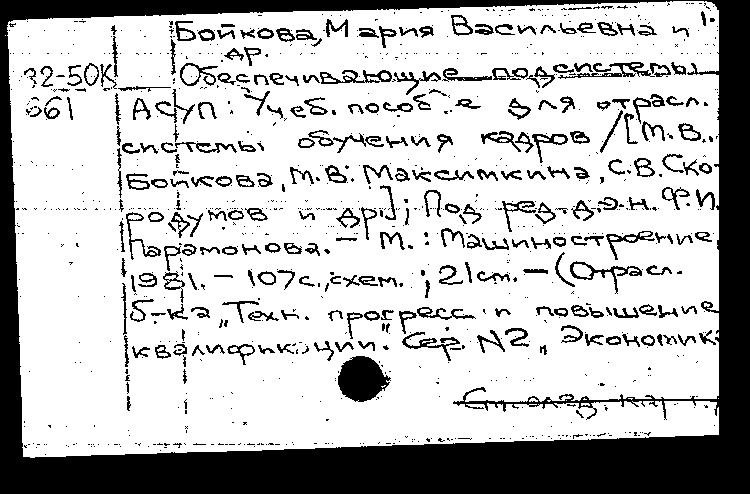 1.
Бойкова, Мария Васильевна и
др.
32-50К Обеспечивающие подсистемы
661 АСУП: Учеб. пособие для отрасл.
системы обучения кадров / [М.В.
Бойкова, М.В. Максимкина, С.В. Ско-
родумов и др.]; Под ред. д.э.н. Ф.И.
Парамонова. – М.: Машиностроение,
1981. – 107с., схем.; 21см. – (Отрасл.
б-ка „Техн. прогресс и повышение
квалификации." Сер. N2, „Экономик
См. след.